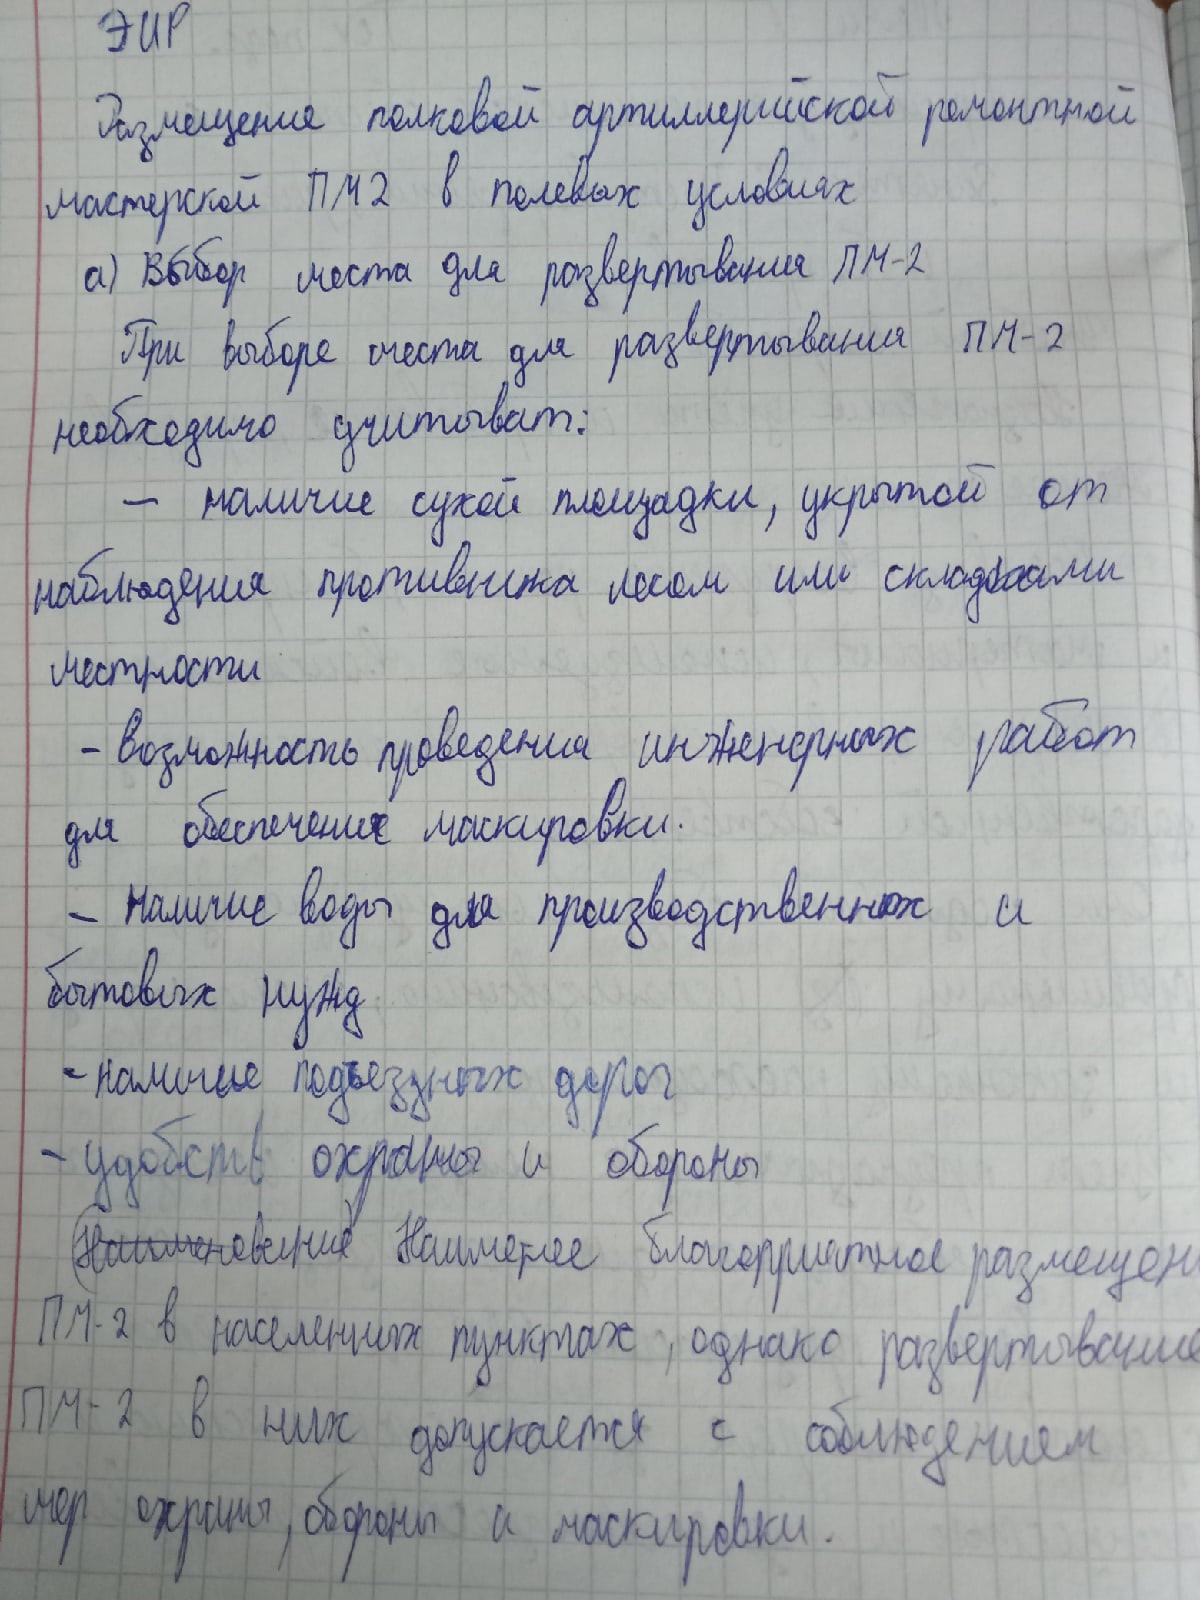 ЭИР
Размещение полковой артиллерийской ремонтной
мастерской ПМ2 в полевых условиях
а) Выбор места для развертывания ПМ-2
При выборе места для развертывания ПМ-2
необходимо учитыват:
— наличие сухой площадки, укрытой от
наблюдения противника лесом или складками
местности
- возможность проведения инженерных работ
для обеспечения маскировки.
— наличие воды для производственных и
бытовых нужд
- наличие подъездных дорог
- удобств охраны и обороны
(Наименование) Наименее благоприятное размещен
ПМ-2 в населенных пунктах, однако развертывание
ПМ-2 в них допускается с соблюдением
мер охраны, обороны и маскировки.